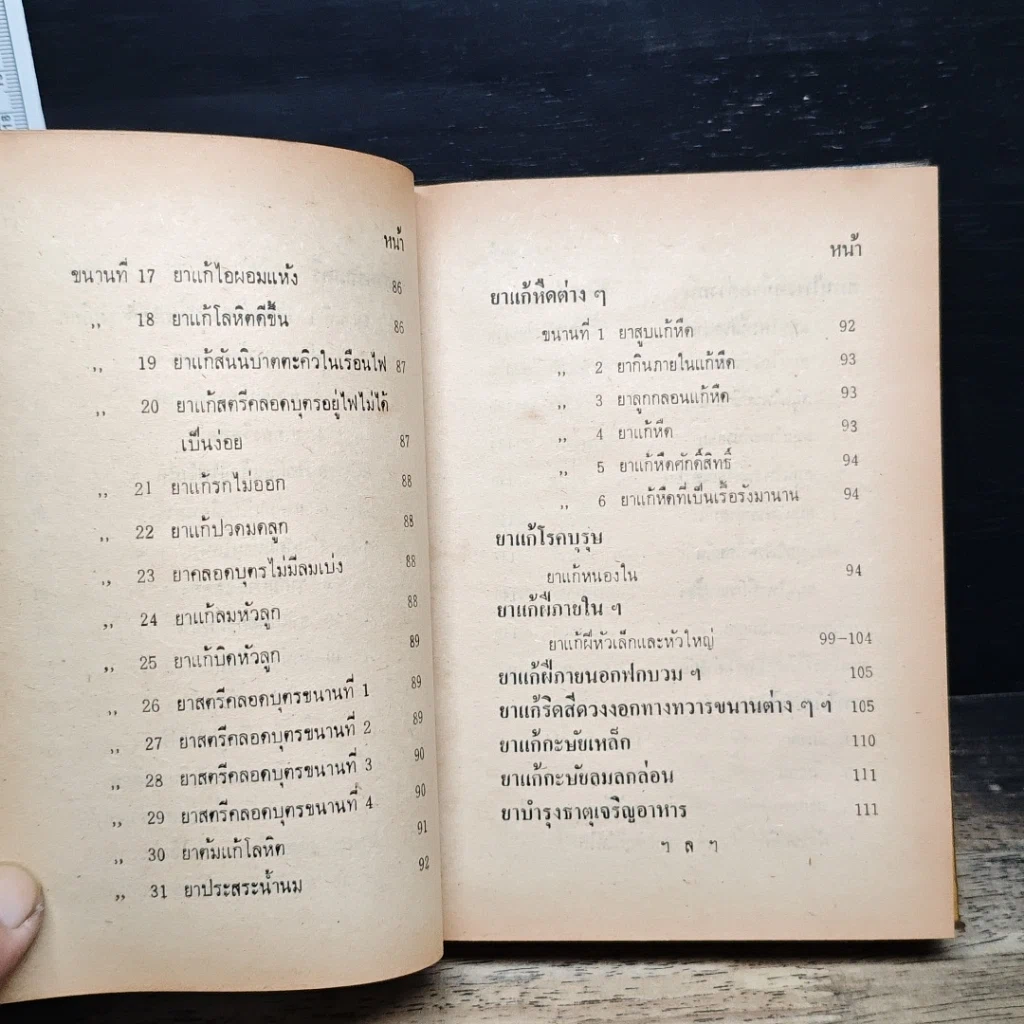 หน้า
ขนานที่ 17 ยาแก้ไอผอมแห้ง 86
,, 18 ยาแก้โลหิตตีขึ้น 86
,, 19 ยาแก้สันนิบาตตะคิวในเรือนไฟ 87
,, 20 ยาแก้สตรีคลอดบุตรอยู่ไฟไม่ได้
เป็นง่อย 87
,, 21 ยาแก้รกไม่ออก 88
,, 22 ยาแก้ปวดมดลูก 88
,, 23 ยาคลอดบุตรไม่มีลมเบ่ง 88
,, 24 ยาแก้ลมหัวลูก 88
,, 25 ยาแก้บิดหัวลูก 89
,, 26 ยาสตรีคลอดบุตรขนานที่ 1 89
,, 27 ยาสตรีคลอดบุตรขนานที่ 2 89
,, 28 ยาสตรีคลอดบุตรขนานที่ 3 90
,, 29 ยาสตรีคลอดบุตรขนานที่ 4 90
,, 30 ยาต้มแก้โลหิต 91
,, 31 ยาประสระน้ำนม 92
หน้า
ยาแก้หืดต่าง ๆ
ขนานที่ 1 ยาสูบแก้หืด 92
,, 2 ยากินภายในแก้หืด 93
,, 3 ยาลูกกลอนแก้หืด 93
,, 4 ยาแก้หืด 93
,, 5 ยาแก้หืดศักดิ์สิทธิ์ 94
,, 6 ยาแก้หืดที่เป็นเรื้อรังมานาน 94
ยาแก้โรคบุรุษ
ยาแก้หนองใน 94
ยาแก้ฝีภายใน ๆ
ยาแก้ฝีหัวเล็กและหัวใหญ่ 99-104
ยาแก้ฝีภายนอกฟกบวม ๆ 105
ยาแก้ริดสีดวงงอกทางทวารขนานต่าง ๆ ฯ 105
ยาแก้กะษัยเหล็ก 110
ยาแก้กะษัยลมลกล่อน 111
ยาบำรุงธาตุเจริญอาหาร 111
ฯ ล ฯ